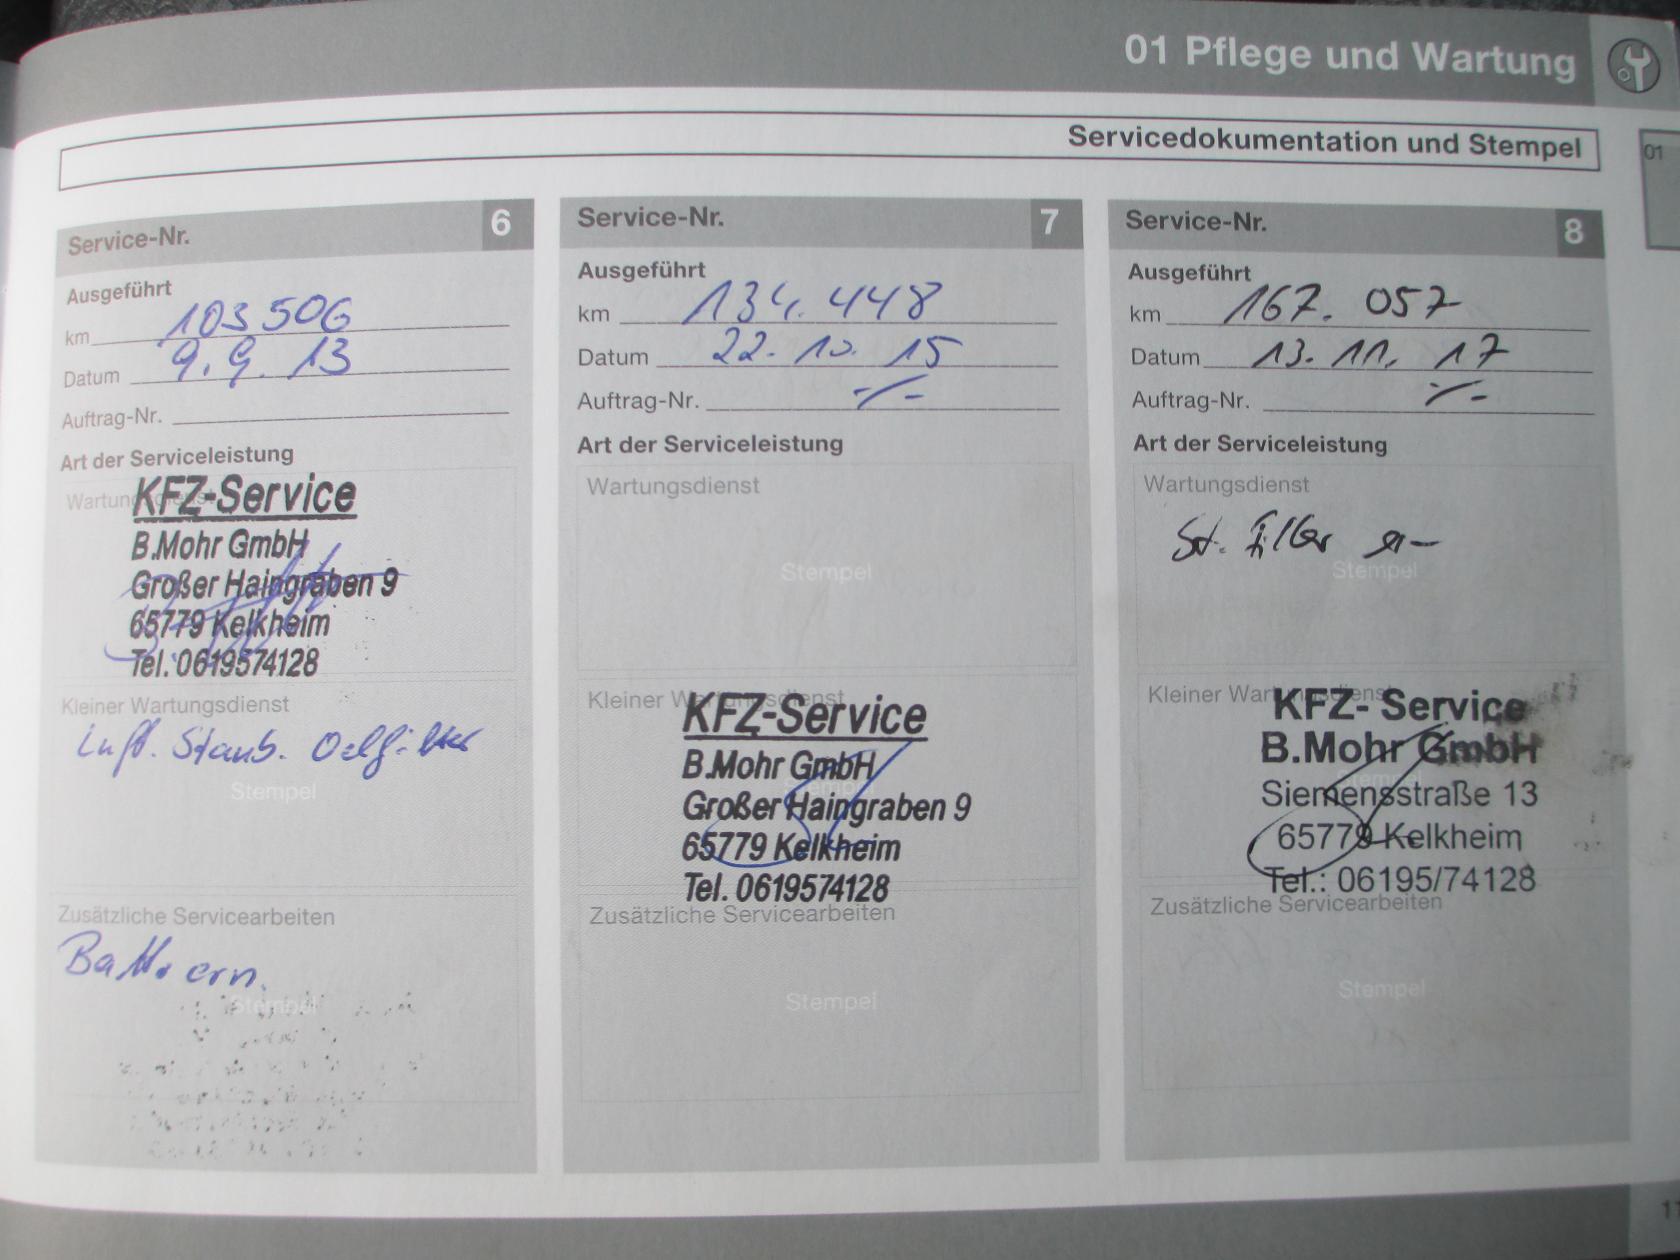 01 Pflege und Wartung
Servicedokumentation und Stempel
01
Service-Nr. 6
Ausgeführt
km 103506
Datum 9.9.13
Auftrag-Nr.
Art der Serviceleistung
Wartungsdienst
KFZ-Service
B.Mohr GmbH
Großer Haingraben 9
65779 Kelkheim
Tel. 0619574128
Kleiner Wartungsdienst
Luft. Staub. Oelfilter
Stempel
Zusätzliche Servicearbeiten
Batt. ern.
Stempel
Service-Nr. 7
Ausgeführt
km 134.448
Datum 22. 10. 15
Auftrag-Nr. -/-
Art der Serviceleistung
Wartungsdienst
Stempel
Kleiner Wartungsdienst
KFZ-Service
B.Mohr GmbH
Großer Haingraben 9
65779 Kelkheim
Tel. 0619574128
Zusätzliche Servicearbeiten
Stempel
Service-Nr. 8
Ausgeführt
km 167. 057
Datum 13. 11. 17
Auftrag-Nr. -/-
Art der Serviceleistung
Wartungsdienst
St. Filter
Stempel
Kleiner Wartungsdienst
KFZ- Service
B.Mohr GmbH
Stempel
Siemensstraße 13
65779 Kelkheim
Tel.: 06195/74128
Zusätzliche Servicearbeiten
Stempel